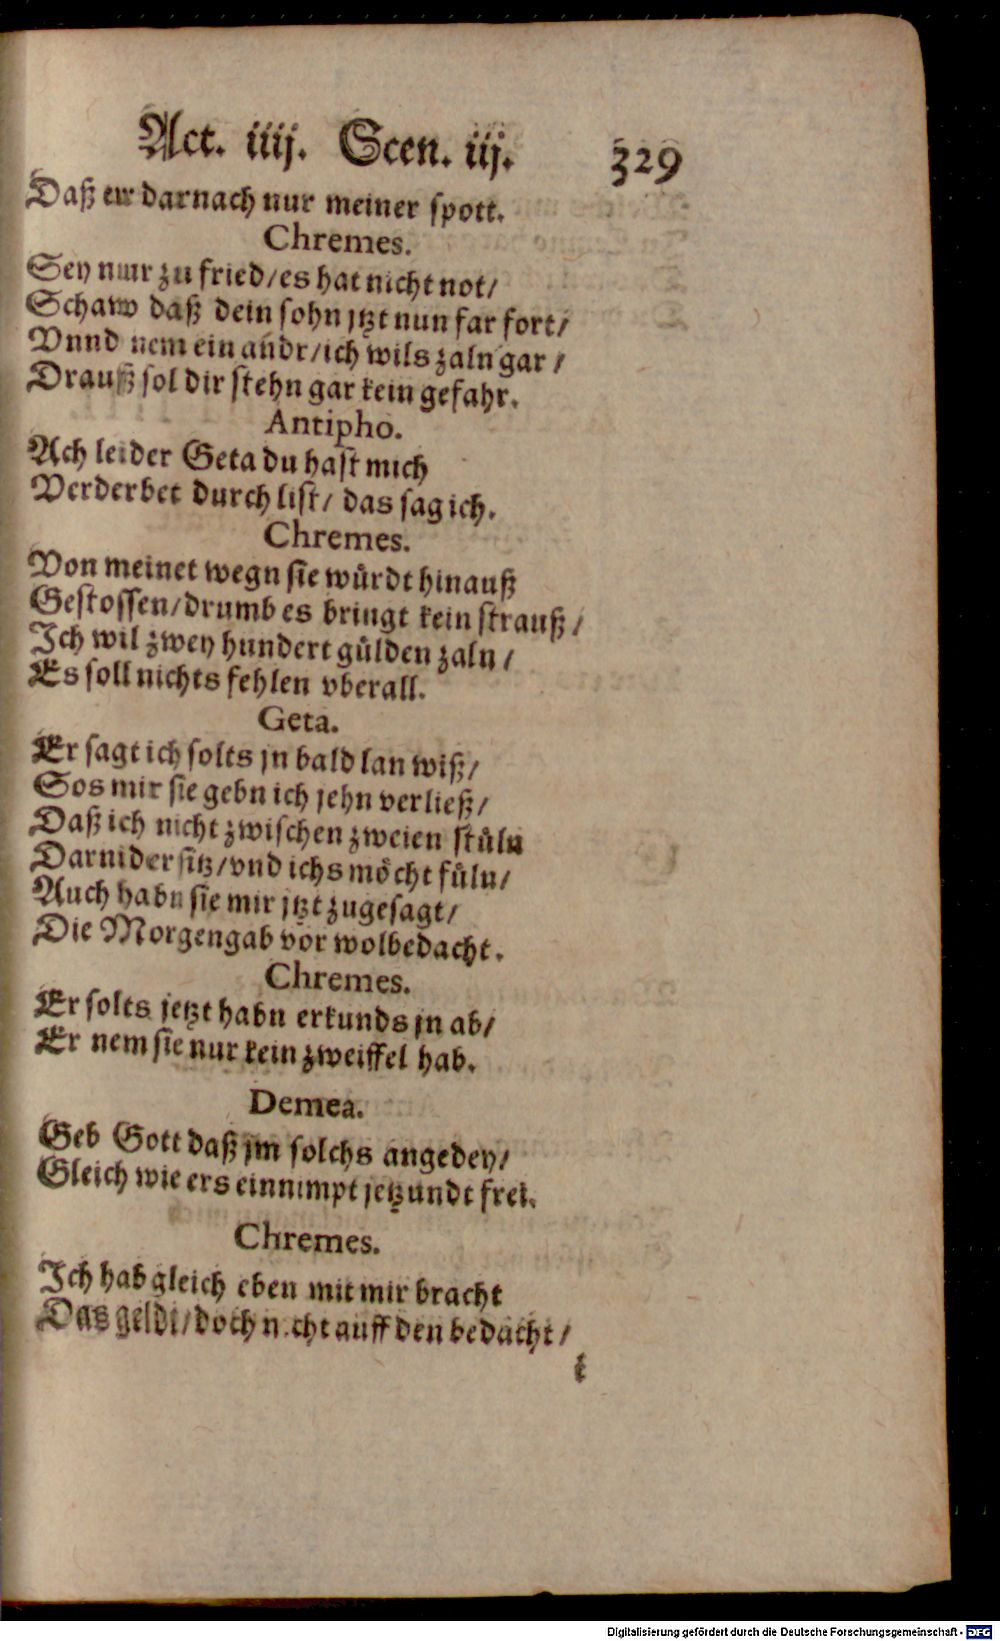 Act. iiij. Scen. iij. 329
Daß er darnach nur meiner spott.
Chremes.
Sey nur zu fried/es hat nicht not/
Schaw daß dein sohn jtzt nun far fort/
Vnnd nem ein andr/ich wils zaln gar /
Drauß sol dir stehn gar kein gefahr.
Antipho.
Ach leider Geta du hast mich
Verderbet durch list/ das sag ich.
Chremes.
Von meinet wegn sie würdt hinauß
Gestossen/drumb es bringt kein strauß /
Ich wil zwey hundert gülden zaln /
Es soll nichts fehlen vberall.
Geta.
Er sagt ich solts jn bald lan wiß/
Sos mir sie gebn ich jehn verließ/
Daß ich nicht zwischen zweien stüln
Darnider sitz/vnd ichs möcht füln/
Auch habn sie mir jtzt zugesagt/
Die Morgengab vor wolbedacht.
Chremes.
Er solts jetzt habn erkunds jn ab/
Er nem sie nur kein zweiffel hab.
Demea.
Geb Gott daß jm solchs angedey/
Gleich wie ers einnimpt jetzundt frei.
Chremes.
Ich hab gleich eben mit mir bracht
Das geldt/doch nicht auff den bedacht /
t
Digitalisierung gefördert durch die Deutsche Forschungsgemeinschaft - DFG